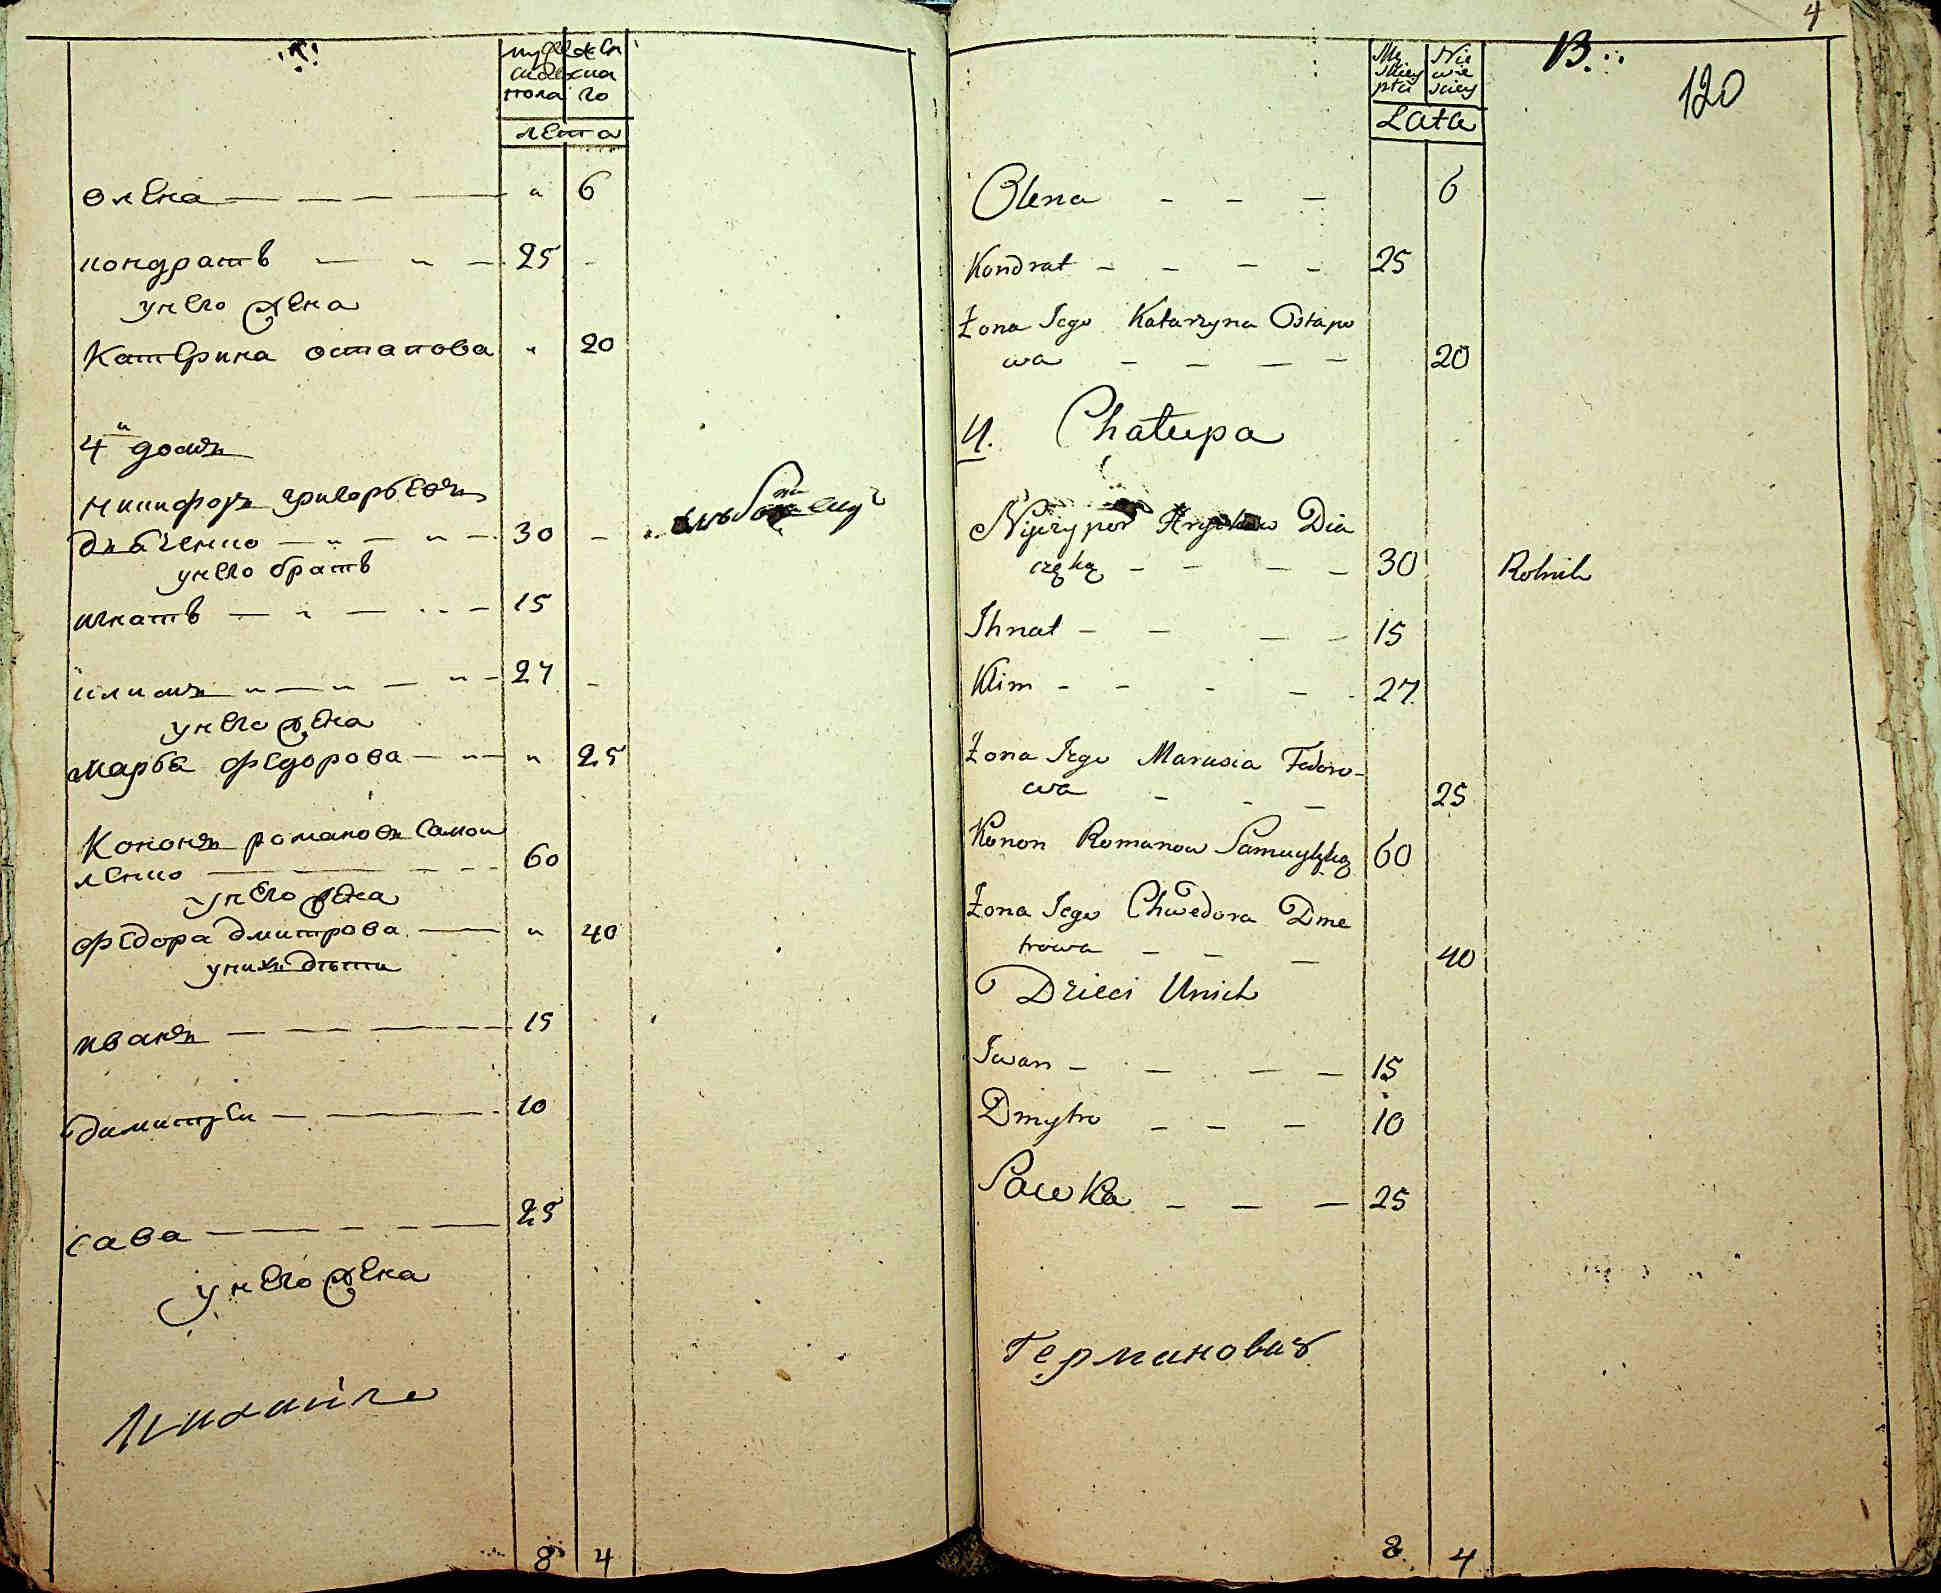 мужеска
сиаго
пола
женска
го
лета
олена — — — — " 6
кондратъ — " — 25 -
унего жена
Катерина остапова " 20
4й домъ
никифоръ григорьевъ
дяченко — " — " — 30 -
унего братъ
игнатъ — " — 15
климъ " — " — " 27 -
унего жена
марья федорова — " — " 25
Кононъ романовъ Самои
ленко — — — 60
унего жена
федора дмитрова — " 40
унихъ дѣти
иванъ — — — 15
димитрей — — 10
сава — — — 25
унего жена
Михаилъ
8 4
4
B.
120
Mę
skiey
płci
Nie
wie
sciey
Lata
Olena - - - 6
Kondrat - - - - 25
Żona Jego Katarzyna Ostapo
wa - - - - 20
4. Chałupa
Niczypor Hryckow Dia
częką - - - - 30 Rolnik
Ihnat - - - - 15
Klim - - - - 27
Żona Jego Marusia Fedoro-
wa - - - 25
Konon Romanow Samuylęką 60
Żona Jego Chwedora Dme
trowa - - - 40
Dzieci Unich
Iwan - - - - 15
Dmytro - - - 10
Sawka - - - 25
Германовичъ
8 4